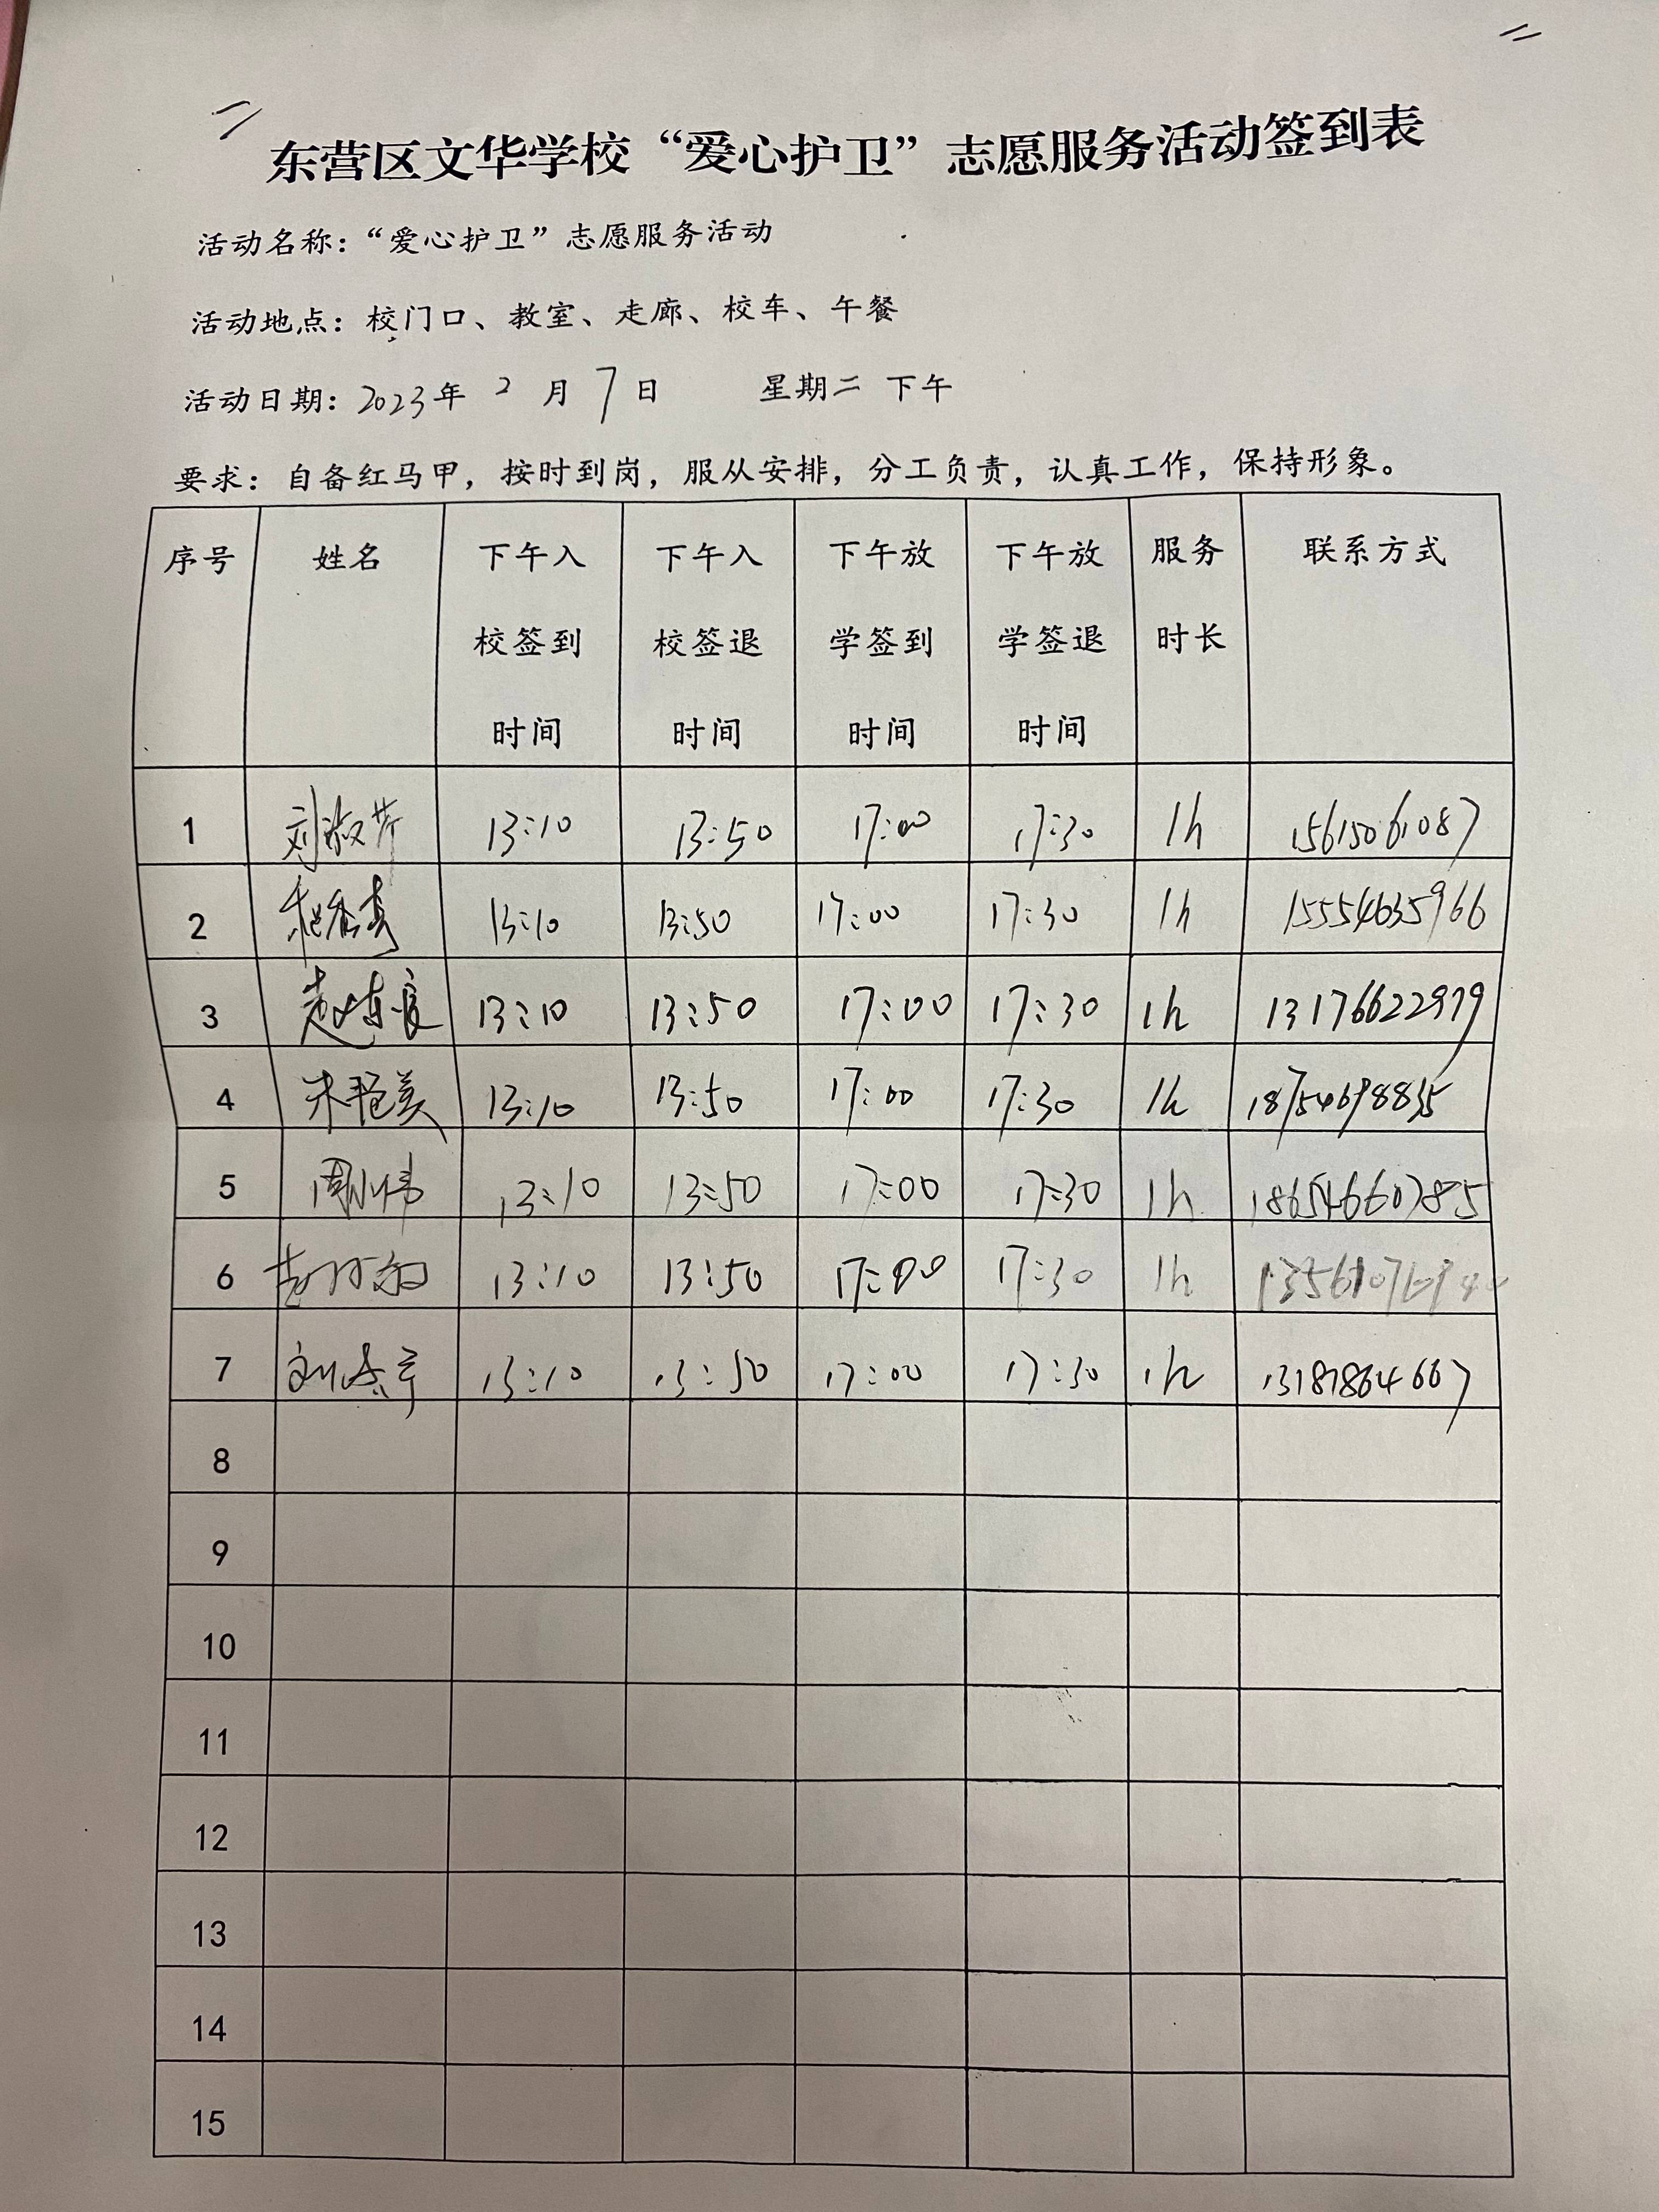 东营区文华学校“爱心护卫”志愿服务活动签到表
活动名称：“爱心护卫”志愿服务活动
活动地点：校门口、教室、走廊、校车、午餐
活动日期：2023年 2 月 7 日 星期二 下午
要求：自备红马甲，按时到岗，服从安排，分工负责，认真工作，保持形象。
序号 姓名 下午入校签到时间 下午入校签退时间 下午放学签到时间 下午放学签退时间 服务时长 联系方式
1 刘淑芹 13:10 13:50 17:00 17:30 1h 15615061087
2 13:10 13:50 17:00 17:30 1h 15554635966
3 13:10 13:50 17:00 17:30 1h 13176622979
4 朱艳美 13:10 13:50 17:00 17:30 1h 18754698835
5 周小伟 13:10 13:50 17:00 17:30 1h 18654660785
6 13:10 13:50 17:00 17:30 1h
7 13:10 13:50 17:00 17:30 1h 13181864667
8
9
10
11
12
13
14
15